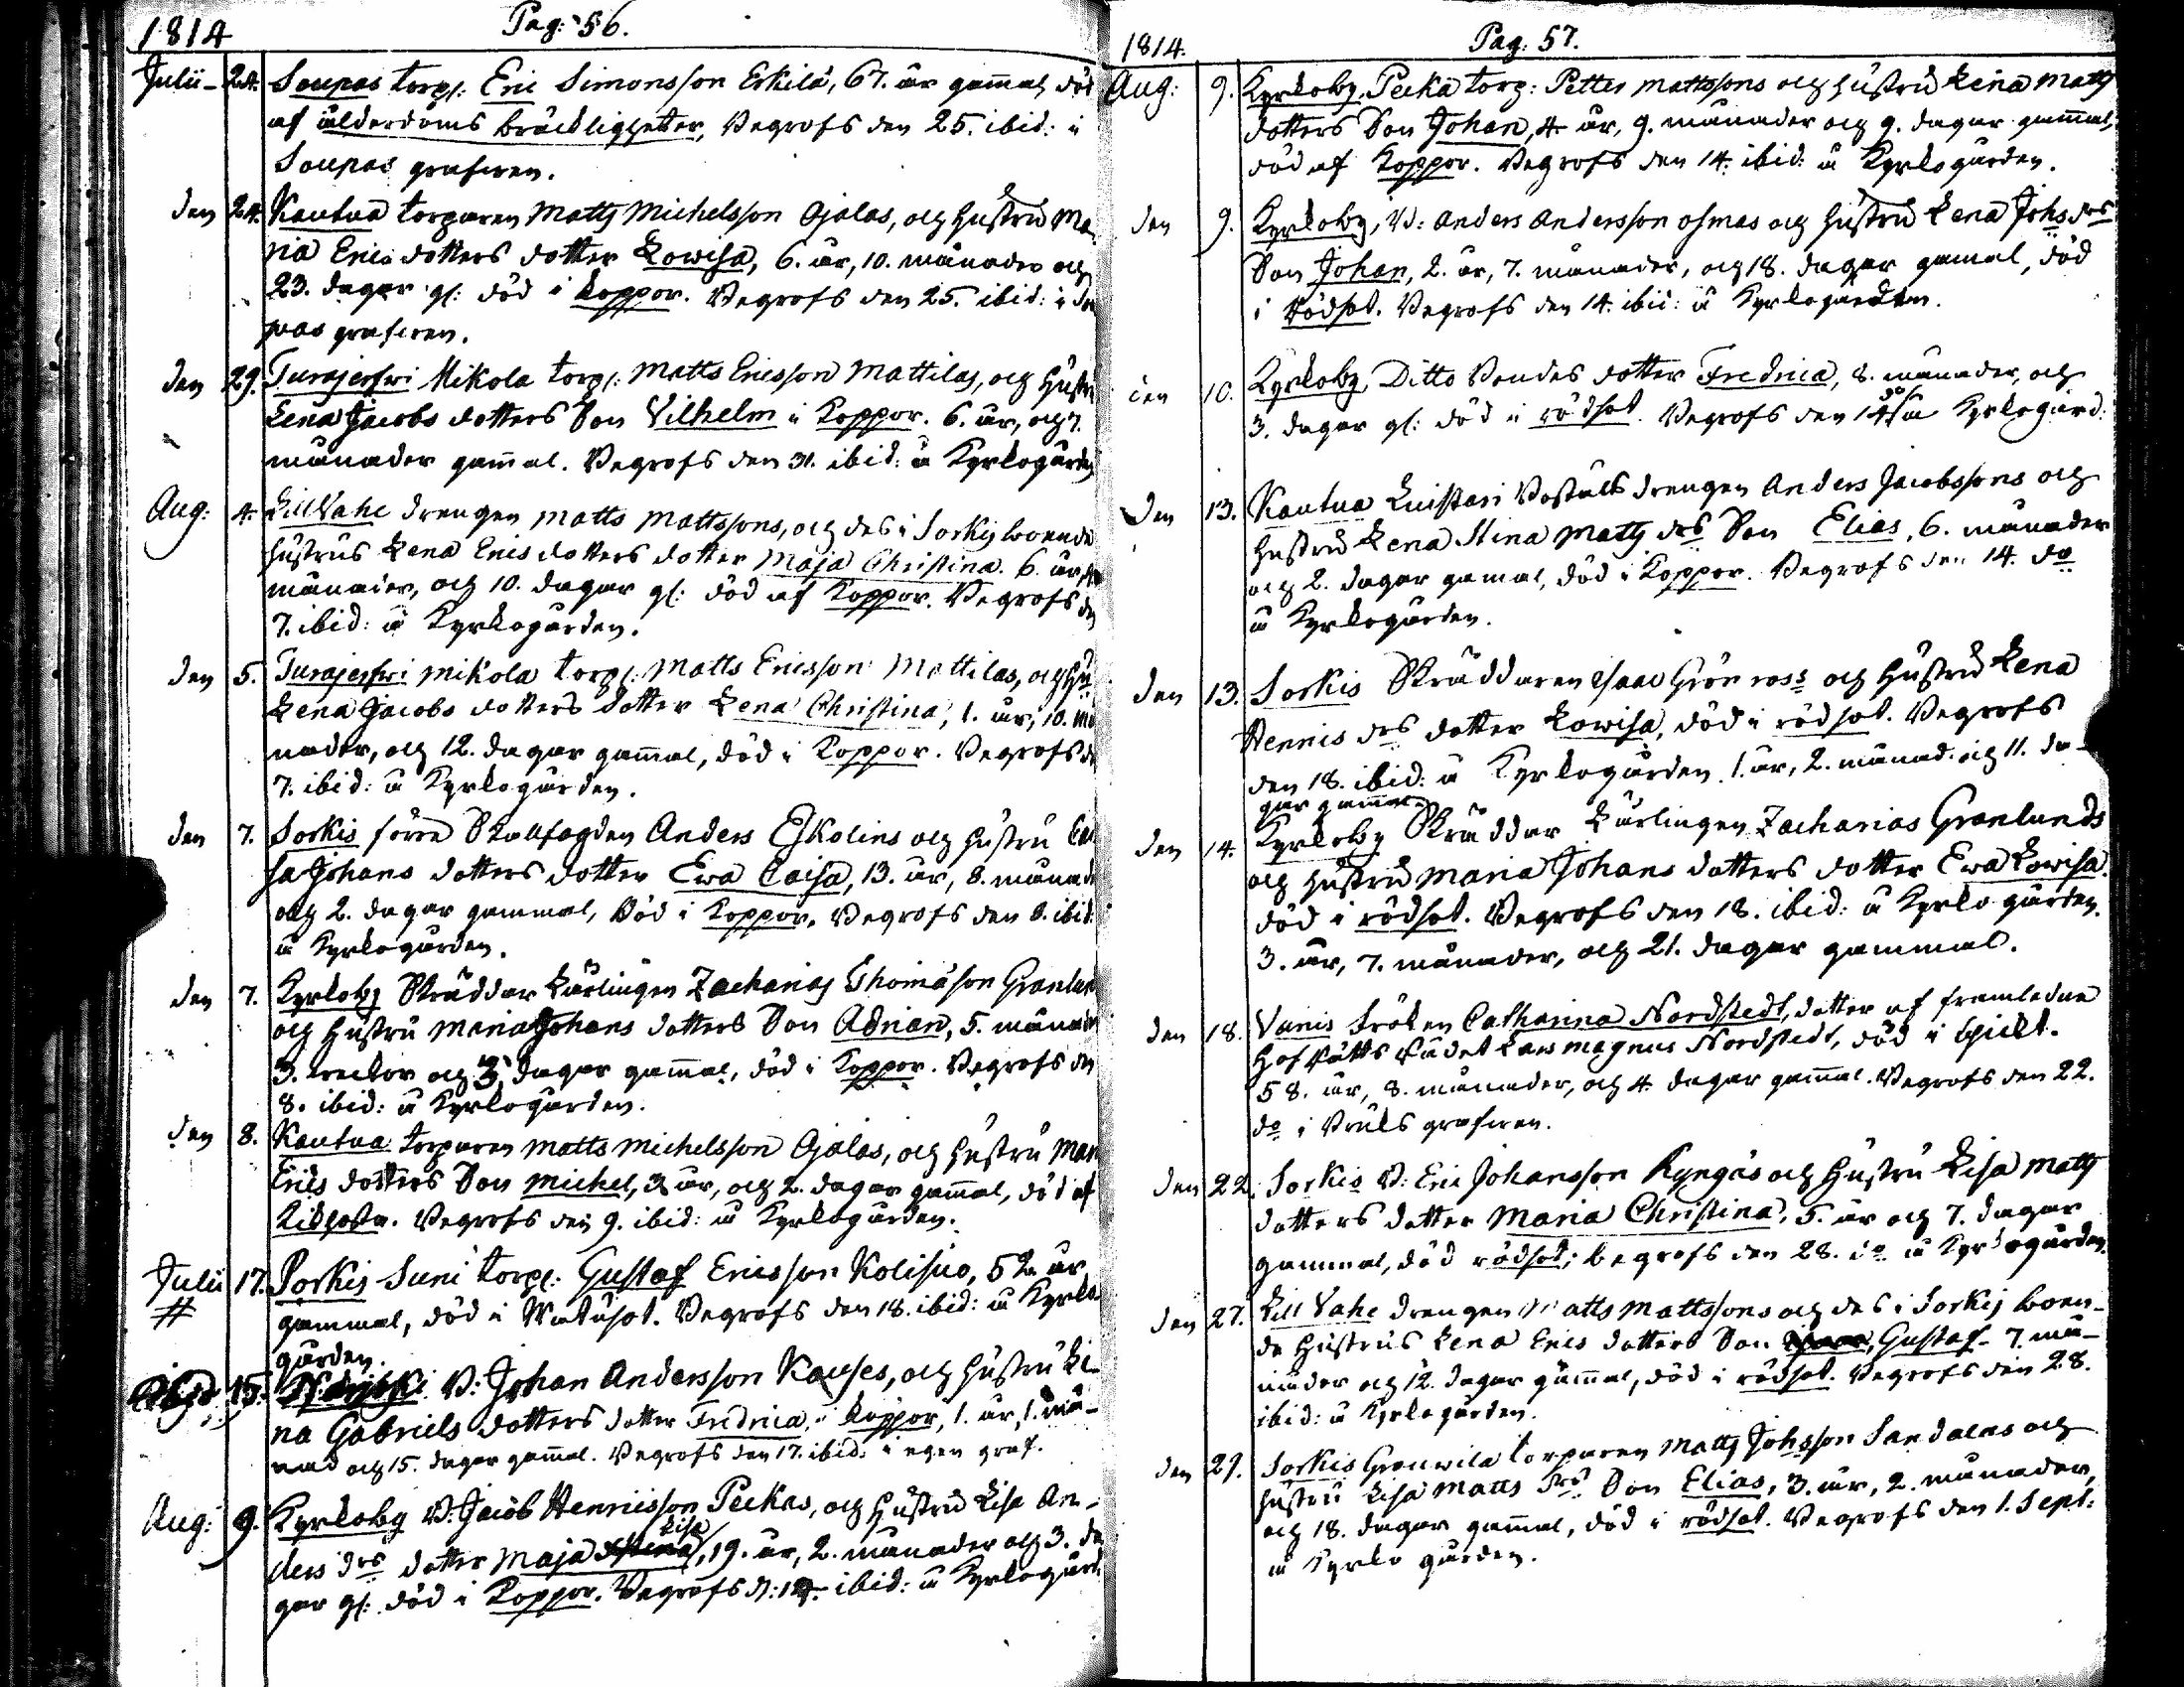 1814 Pag: 56.
Julii - 24. Soupas torp: Eric Simonsson Eskilä, 67. år gamal, död
af ålderdoms bräckligheter, Begrofs den 25. ibid: i
Soupas grafwen.
den 24. Kautua torparen Matts Michelsson Ojalas, och hustru Ma-
ria Erics dotters dotter Lowisa, 6. år, 10. månader och
23. dagar gl: död i koppor. Begrofs den 25. ibid: i Sou
pas grafwen.
den 29. Turajerfwi Mikola torp: Matts Ericsson Mattilas, och hustru
Lena Jacobs dotters Son Vilhelm i Koppor. 6. år, och 7.
månader gamal. Begrofs den 31. ibid: å Kyrkogården
Aug: 4. Lill Vahe drengen Matts Mattssons, och des i Sorkis boende
hustrus Lena Erics dotters dotter Maja Christina. 6. år,
månader, och 10. dagar gl: död af Koppor. Begrofs den
7. ibid: å Kyrkogården.
den 5. Turajerfwi Mikola torp: Matts Ericsson Mattilas, och hu
Lena Jacobs dotters dotter Lena Christina, 1. år, 10. må
nader, och 12. dagar gamal, död i Koppor. Begrofs d
7. ibid: å Kyrkogården.
den 7. Sorkis förre Skallfogden Anders Ekolins och hustru Cai
sa Johans dotters dotter Ewa Caisa, 13. år, 8. månade
och 2. dagar gammal, Död i Koppor, Begrofs den 8. ibid:
å Kyrkogården.
den 7. Kyrkoby Skräddar Lärlingen Zacharias Thomasson Granlund
och hustru Maria Johans dotters Son Adrian, 5. månader
3. weckor och 3 dagar gamal, död i Koppor. Begrofs den
8. ibid: å Kyrkogården.
den 8. Kautua torparen Matts Michelsson Ojalas, och hustru Mari
Erics dotters Son Michel, 3 år, och 2. dagar gamal, död af
Kikhosta. Begrofs den 9. ibid: å Kyrkogården.
Julii 17. Sorkis Suni torp: Gustaf Ericsson Kolisuo, 52 år
# gammal, död i Watusot. Begrofs den 18. ibid: å Kyrko-
gården.
15. B: Johan Andersson Kauses, och hustru Li-
na Gabriels dotters dotter Fredrica, i koppor, 1. år, 1. må-
nad och 15. dagar gamal. Begrofs den 17. ibid: i egen graf.
Aug: 9. Kyrkoby B: Jacob Henricsson Peckas, och hustru Lisa An-
Lisa
ders drs dotter Maja Stina, 19. år, 2. månader och 3. da
gar gl: död i Koppor. Begrofs d: 14. ibid: å Kyrkogård.
1814. Pag: 57.
Aug: 9. Kyrkoby Pecka torp: Petter Mattssons och hustru Lena Matts
dotters Son Johan, 4 år, 9. månader och 9. dagar gammal,
död af Koppor. Begrofs den 14. ibid: å Kyrkogården.
den 9. Kyrkoby, B: Anders Andersson Osmas och hustru Lena Johs drs
Son Johan, 2. år, 7. månader, och 18. dagar gamal, död
i Rödsot. Begrofs den 14. ibid: å Kyrkogården.
den 10. Kyrkoby Ditto Bondes dotter Fredrica, 8. månader, och
do
3. dagar gl: död i rödsot. Begrofs den 14 å Kyrkogård.
den 13. Kautua Luistari Boställs drengen Anders Jacobssons och
hustru Lena Stina Matts drs Son Elias, 6. månader
och 2. dagar gamal, död i Koppor. Begrofs den 14. do
å Kyrkogården.
den 13. Sorkis Skräddaren Isaac Grönross och hustru Lena
Hennis drs dotter Lowisa, död i rödsot. Begrofs
den 18. ibid: å Kyrkogården 1. år, 2. månad. och 11. da-
gar gammal.
den 14. Kyrkoby Skräddar Lärlingen Zacharias Granlunds
och hustru Maria Johans dotters dotter Ewa Lowisa.
död i rödsot. Begrofs den 18. ibid: å Kyrko gården.
3. år, 7. månader, och 21. dagar gammal.
den 18. Vanis Fröken Catharina Nordstedt, dotter af framledne
Hof Rätts Rådet Lars Magnus Nordstedt, död i Gickt.
58. år, 8. månader, och 4. dagar gamal. Begrofs den 22.
do i Bruks grafwen.
den 22. Sorkis B: Eric Johansson Ryngäs och hustru Lisa Matts
dotters dotter Maria Christina, 5. år och 7. dagar
gammal, död rödsot; begrofs den 28. do å Kyrkogården.
den 27. Lill Vahe drengen Matts Mattssons och des i Sorkis boen-
de hustrus Lena Erics dotters Son Gustaf 7. må-
nader och 12. dagar gammal, död i rödsot. Begrofs den 28.
ibid: å Kyrkogården.
den 29. Sorkis Grouwila torparen Matts Johsson Sandaas och
hustru Lisa Matts drs Son Elias, 3. år, 2. månader,
och 18. dagar gamal, död i rödsot. Begrofs den 1. Sept:
å Kyrko gården.